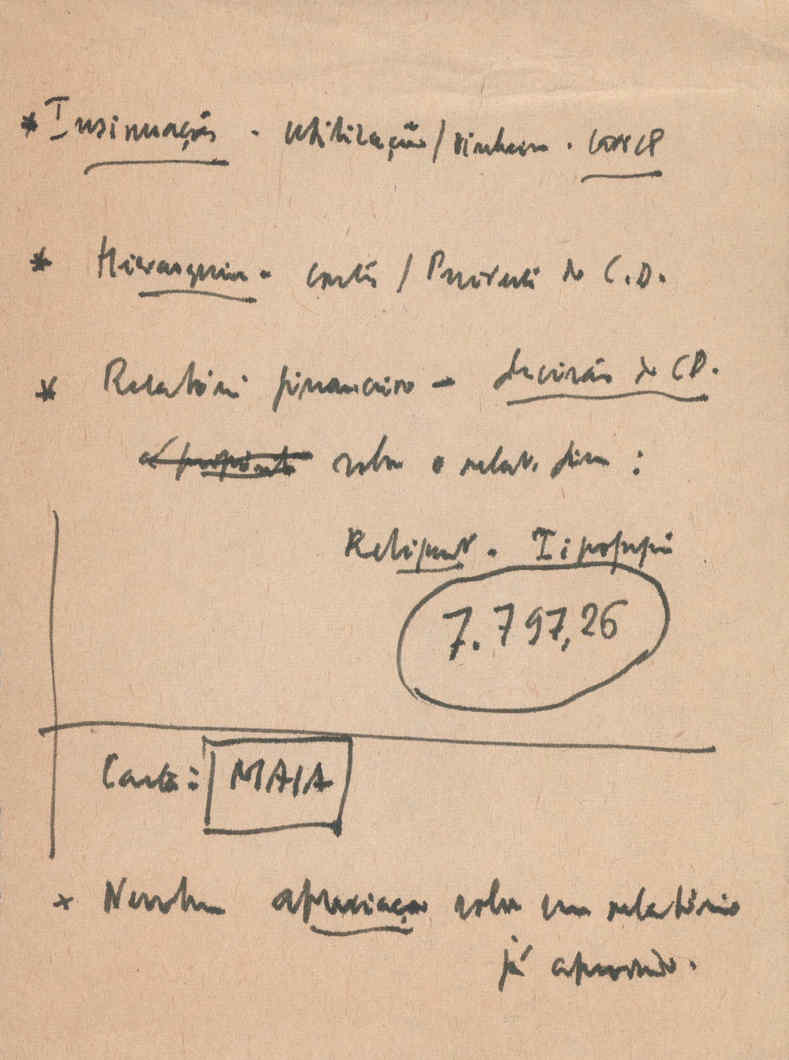 * Insinuação - utilização / dinheiro.
* Hierarquia - cartão / Presidente do C.D.
* Relatório financeiro - decisão do CD.
a propósito sobre o relat. fin :
- Tipografia
7.797,26
Cartão: MAIA
x Nenhuma apreciação sobre um relatório
já aprovado.